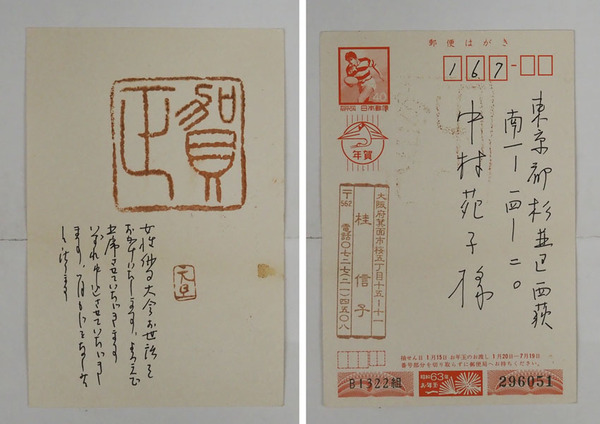 賀正
元旦
女性俳句大会お世話を
おかけいたします。よろこんで
出席させていただきます
いずれ申込させていただき
ます。
郵便はがき
日本郵便
167-
年賀
東京都杉並区西荻
南一ー一四ー二〇
中村苑子様
大阪府箕面市桜五丁目十五ー十一
桂信子
〒562
電話〇七二七(二一)四五〇八
抽せん日 1月15日 お年玉のお渡し 1月20日ー7月19日
番号部分を切り取らずに郵便局へお持ちください。
B1322組
昭和63年
お年玉
296051